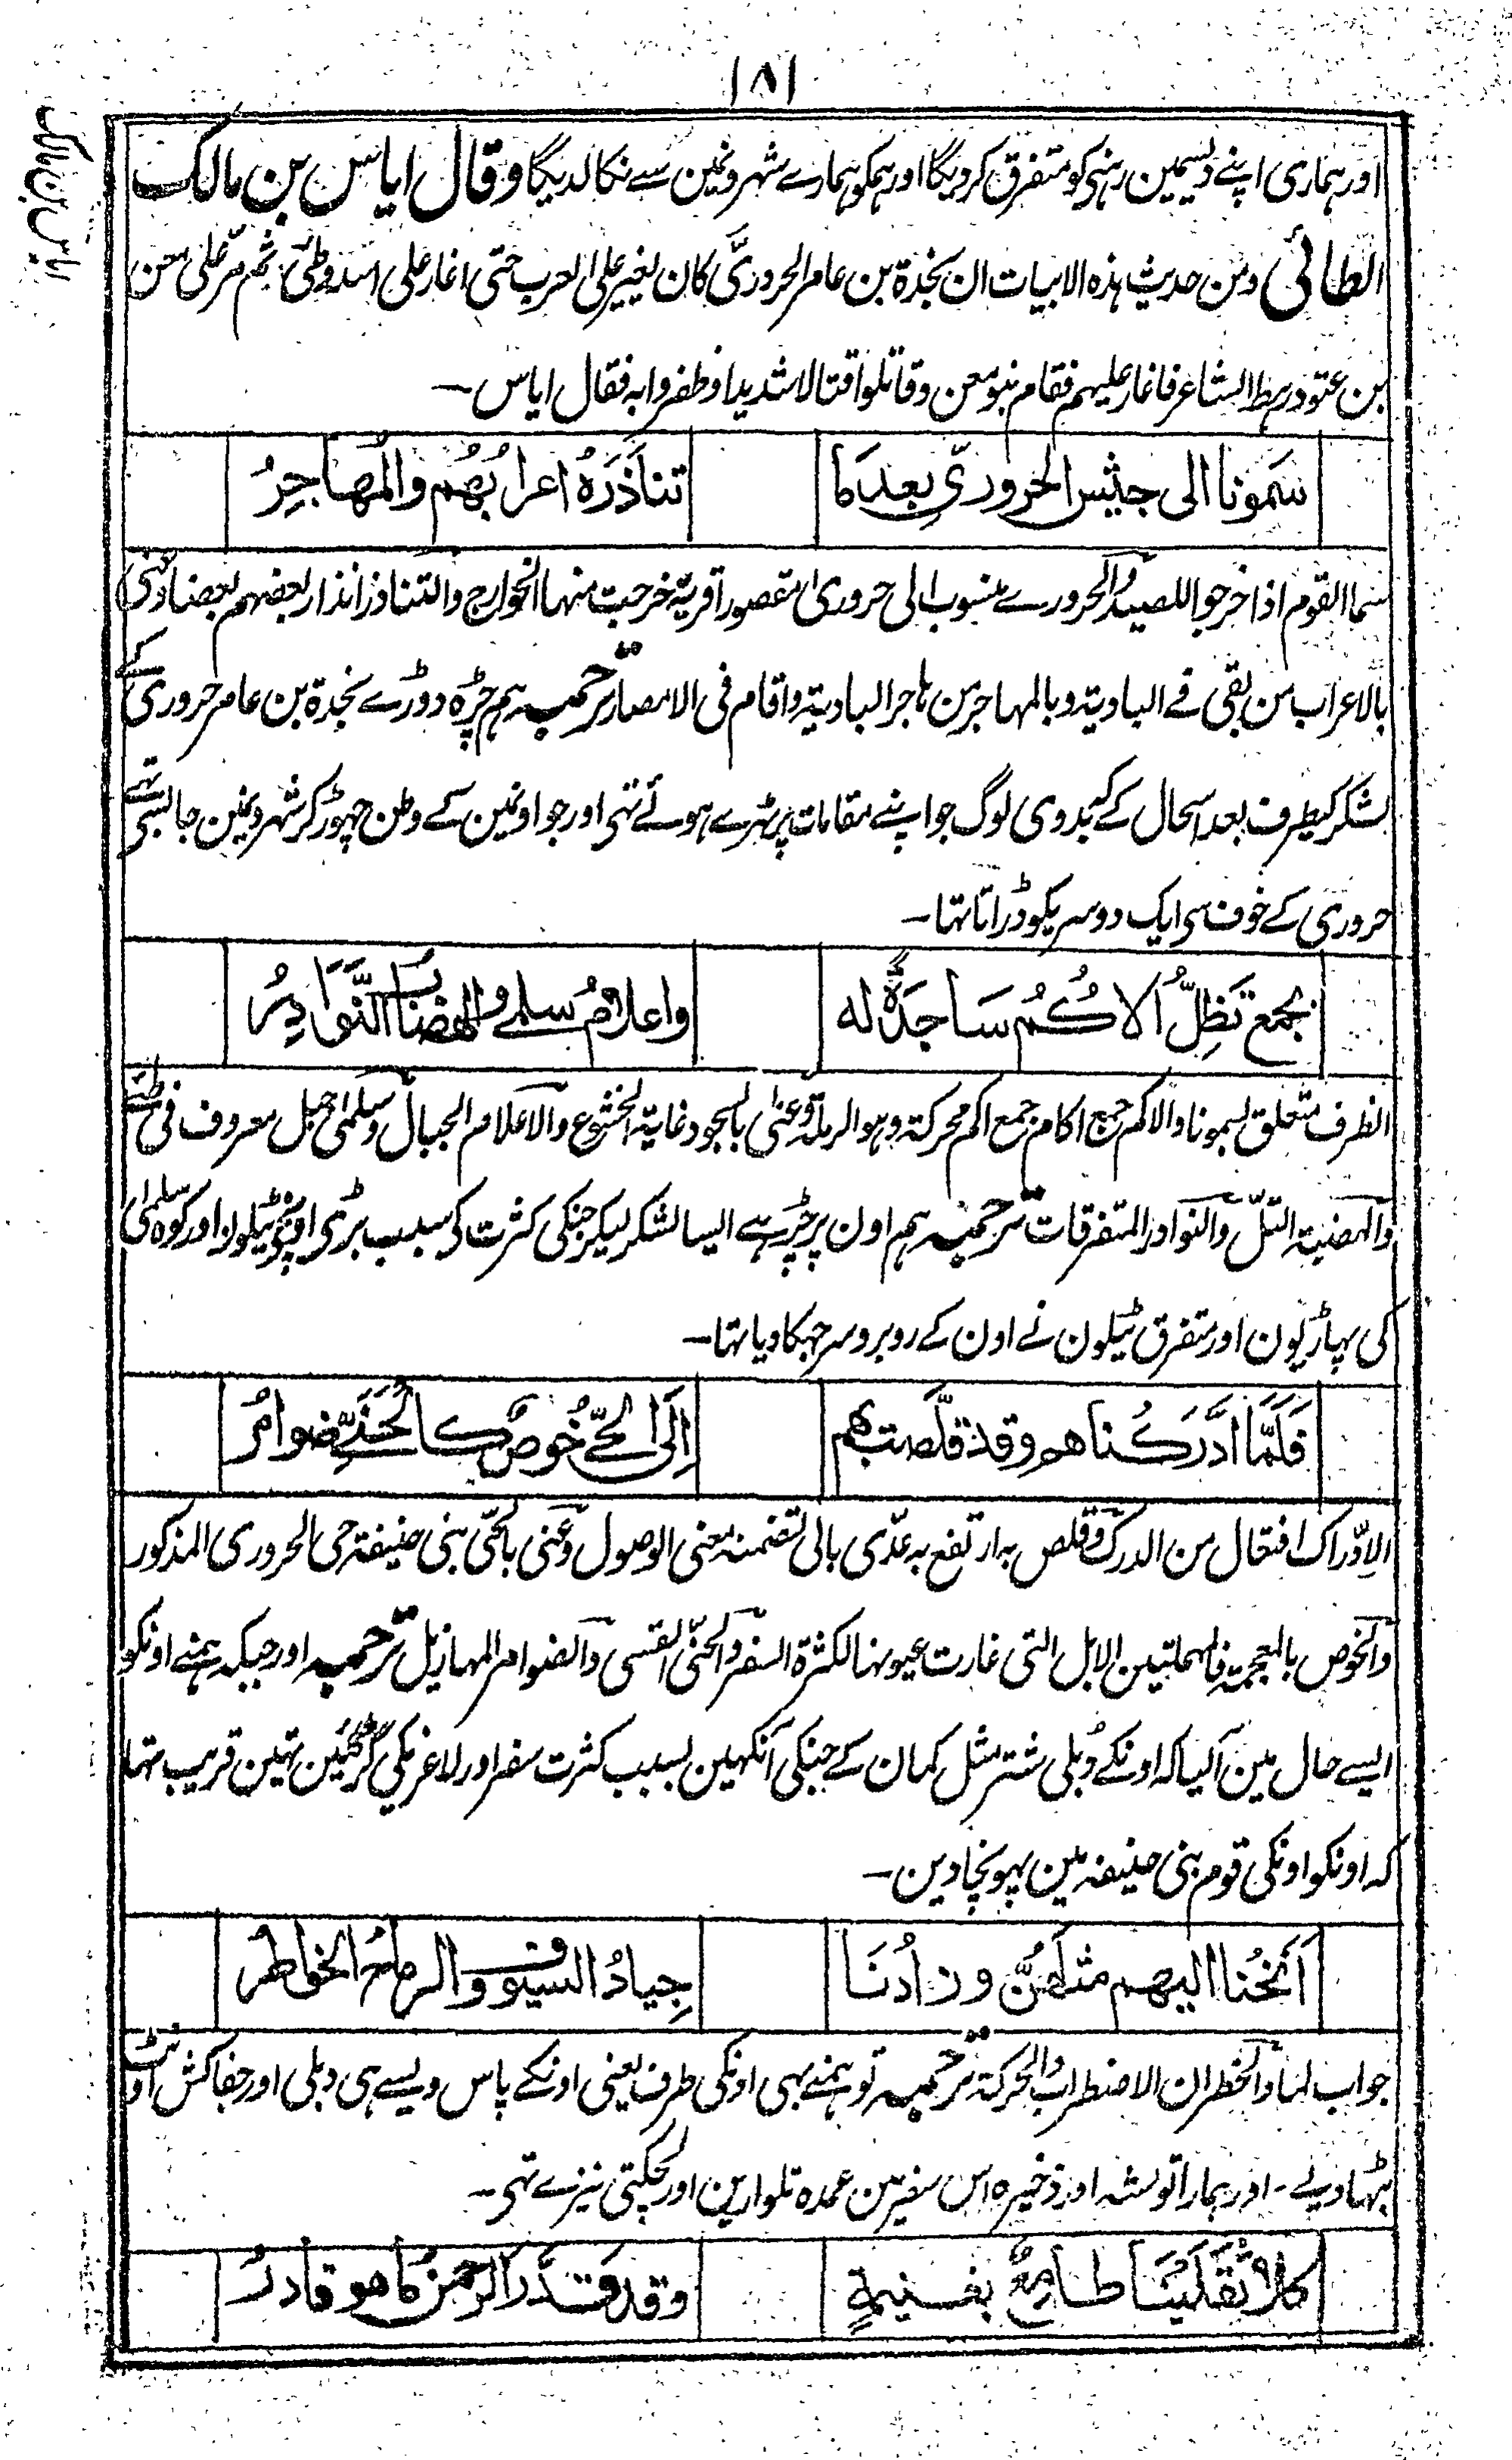 ۱۸۱
ایاس بن مالک
اور ہماری اپنے دیسمین رہنی کو متفرق کردیگا اور ہمکو ہمارے شہرونمین سے نکالدیگا وقال ایاس بن مالک
الطائی ومن حدیث ہذہ الابیات ان نجدة بن عامر الحروریَّ کان یغیر علی العرب حتی اغار علی اسد وطیٔ ثم مرّ علی معن
بن عتود رہط الشاعر فاغار علیہم فقام بنو معن وقاتلوا قتالا شدیدا وظفروا بہ فقال ایاس ـ
سَمونا الی جیش الحروریّ بعدَما
تناذَرَہُ اعرابُھُم والمُھاجِرُ
سما القوم اذا خرجوا للصید والحرورے منسوب الی حروریٰ مقصورا قریة خرجت منہا الخوارج والتناذر انذار بعضہم بعضا وعنی
بالاعراب من بقی فے البادیة وبالمہاجر من ہاجر البادیة واقام فی الامصار ترجمہ ہم چڑہ دوڑے نجدة بن عامر حروری کے
لشکر کیطرف بعد اسحال کے کہ بدوی لوگ جو اپنے مقامات پر ٹہرے ہوئے تہی اور جو اونمین کے وطن چہوڑ کر شہرونمین جا بسے تہے
حروری کے خوف سی ایک دوسریکو ڈراتا تہا ـ
بجمع تَظِلُّ الاُکُمُ سَاجدَةً له
واعلامُ سلمے والھضابُ النَّوَادِرُ
الظرف متعلق بسمونا والاکم جمع اکام جمع اکم محرکة وہو الرملة وعنی بالسجود غایة الخشوع والاعلام الجبال وسلمی جبل معروف فی طیٔ
والہضبة التلّ والنوادر المتفرقات ترجمہ ہم اون پر چڑہے ایسا لشکر لیکر جنکی کثرت کی سبب بڑی اونچی ٹیلون اور کوہ سلمی
کی پہاڑیون اور متفرق ٹیلون نے اون کے روبرو سر جہکا دیا تہا ـ
فَلَمَّا ادَّرَکْنا ھم وقد قلّصت بھم
اِلَی الحیّ خُوصٌ کالحَنِیِّ ضوامرُ
الاِدّراک افتعال من الدرک وقلص بہ ارتفع بہ عدّی بالی لتضمنہ معنی الوصول وعنی بالحیّ بنی حنیفة حی الحروری المذکور
والخوص بالمعجمة فالمہملتین الابل التی غارت عیونہا لکثرة السفر والحنیّ القسی والضوامر المہازیل ترجمہ اور جبکہ ہمنے اونکو
ایسے حال مین آلیا کہ اونکے دُبلی شتر مثل کمان کے جنکی آنکہین بسبب کثرت سفر اور لاغری کی گڑ گئین تہین قریب تہا
کہ اونکو اونکی قوم بنی حنیفہ مین پہونچادین ـ
اَنَخْنا الیھم مثلَھُنَّ وزادُنَا
جِیادُ السیوف والرماحُ الخواطرُ
جواب لما والخطران الاضطراب والحرکة ترجمہ تو ہمنے بہی اونکی طرف یعنی اونکے پاس ویسے ہی دبلی اور جفاکش اونٹ
بٹہادیے ـ اور ہمارا توشہ اور ذخیرہ اس سفر مین عمدہ تلوارین اور لچکتی نیزے تہی ـ
کلا ثَقَلَینا طامعٌ بغنیمةٍ
وقد قَدَّر الرحمنُ ما ھو قادرُ